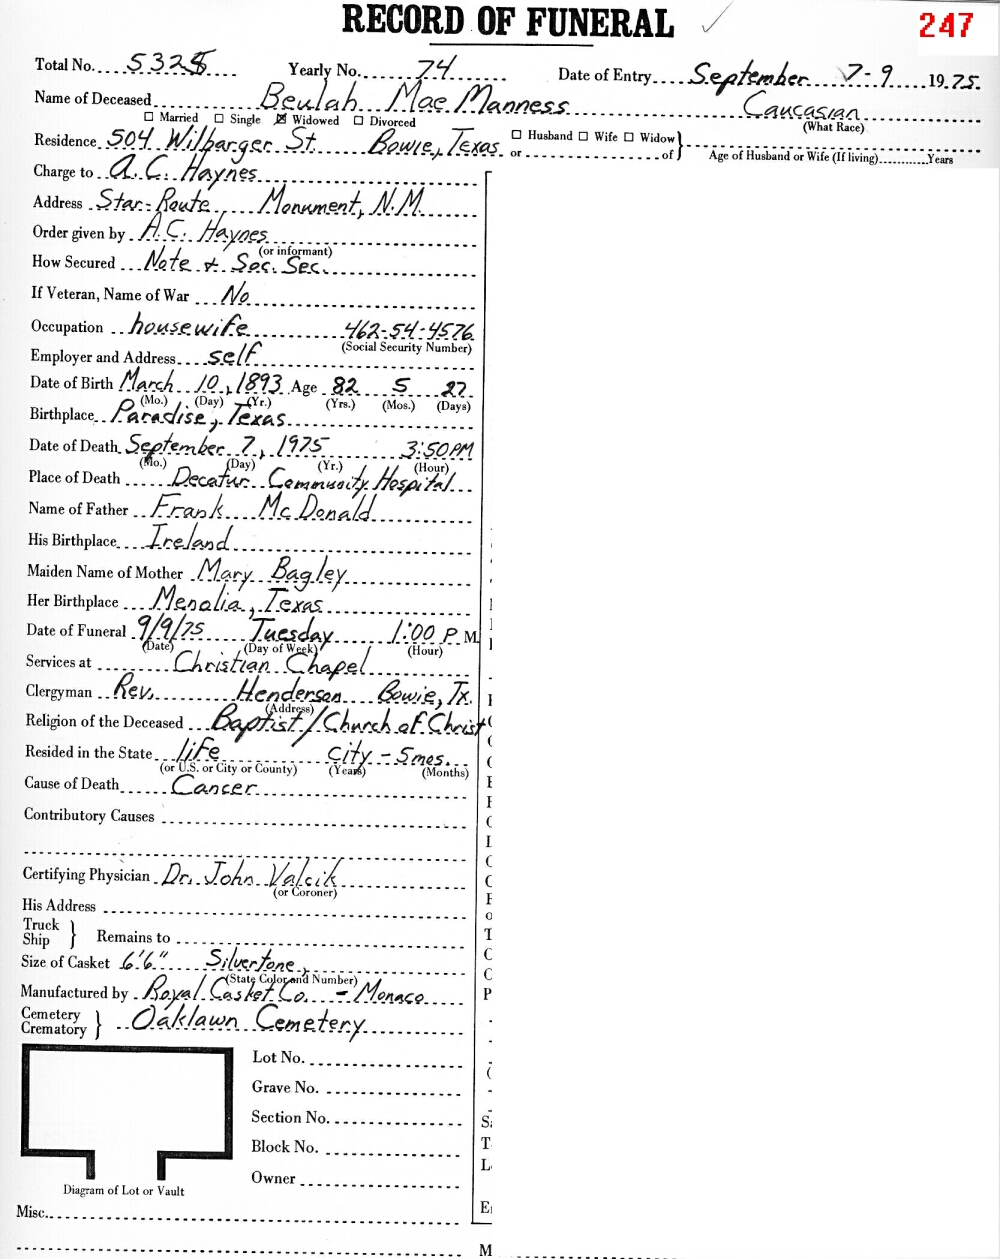 RECORD OF FUNERAL ✓ 247
Total No. 5328 Yearly No. 74 Date of Entry September 7-9 1975
Name of Deceased Beulah Mae Manness Caucasian
☐ Married ☐ Single ☒ Widowed ☐ Divorced (What Race)
Residence 504 Wilbarger St. Bowie, Texas ☐ Husband ☐ Wife ☐ Widow } or of Age of Husband or Wife (If living) Years
Charge to A.C. Haynes
Address Star-Route, Monument, N.M.
Order given by A.C. Haynes
(or informant)
How Secured Note + Soc. Sec.
If Veteran, Name of War No
Occupation housewife 462-54-4576
(Social Security Number)
Employer and Address self
Date of Birth March 10, 1893 Age 82 5 27
(Mo.) (Day) (Yr.) (Yrs.) (Mos.) (Days)
Birthplace Paradise, Texas
Date of Death September 7, 1975 3:50 PM
(Mo.) (Day) (Yr.) (Hour)
Place of Death Decatur Community Hospital
Name of Father Frank McDonald
His Birthplace Ireland
Maiden Name of Mother Mary Bagley
Her Birthplace Menalia, Texas
Date of Funeral 9/9/75 Tuesday 1:00 P. M.
(Date) (Day of Week) (Hour)
Services at Christian Chapel
Clergyman Rev. Henderson Bowie, Tx.
(Address)
Religion of the Deceased Baptist/Church of Christ
Resided in the State life city - 5 mos.
(or U.S. or City or County) (Years) (Months)
Cause of Death Cancer
Contributory Causes
Certifying Physician Dr. John Valcik
(or Coroner)
His Address
Truck
Ship } Remains to
Size of Casket 6'6" Silvertone
(State Color and Number)
Manufactured by Royal Casket Co. - Monaco
Cemetery
Crematory } Oaklawn Cemetery
Lot No.
Grave No.
Section No.
Block No.
Owner
Diagram of Lot or Vault
Misc.
M